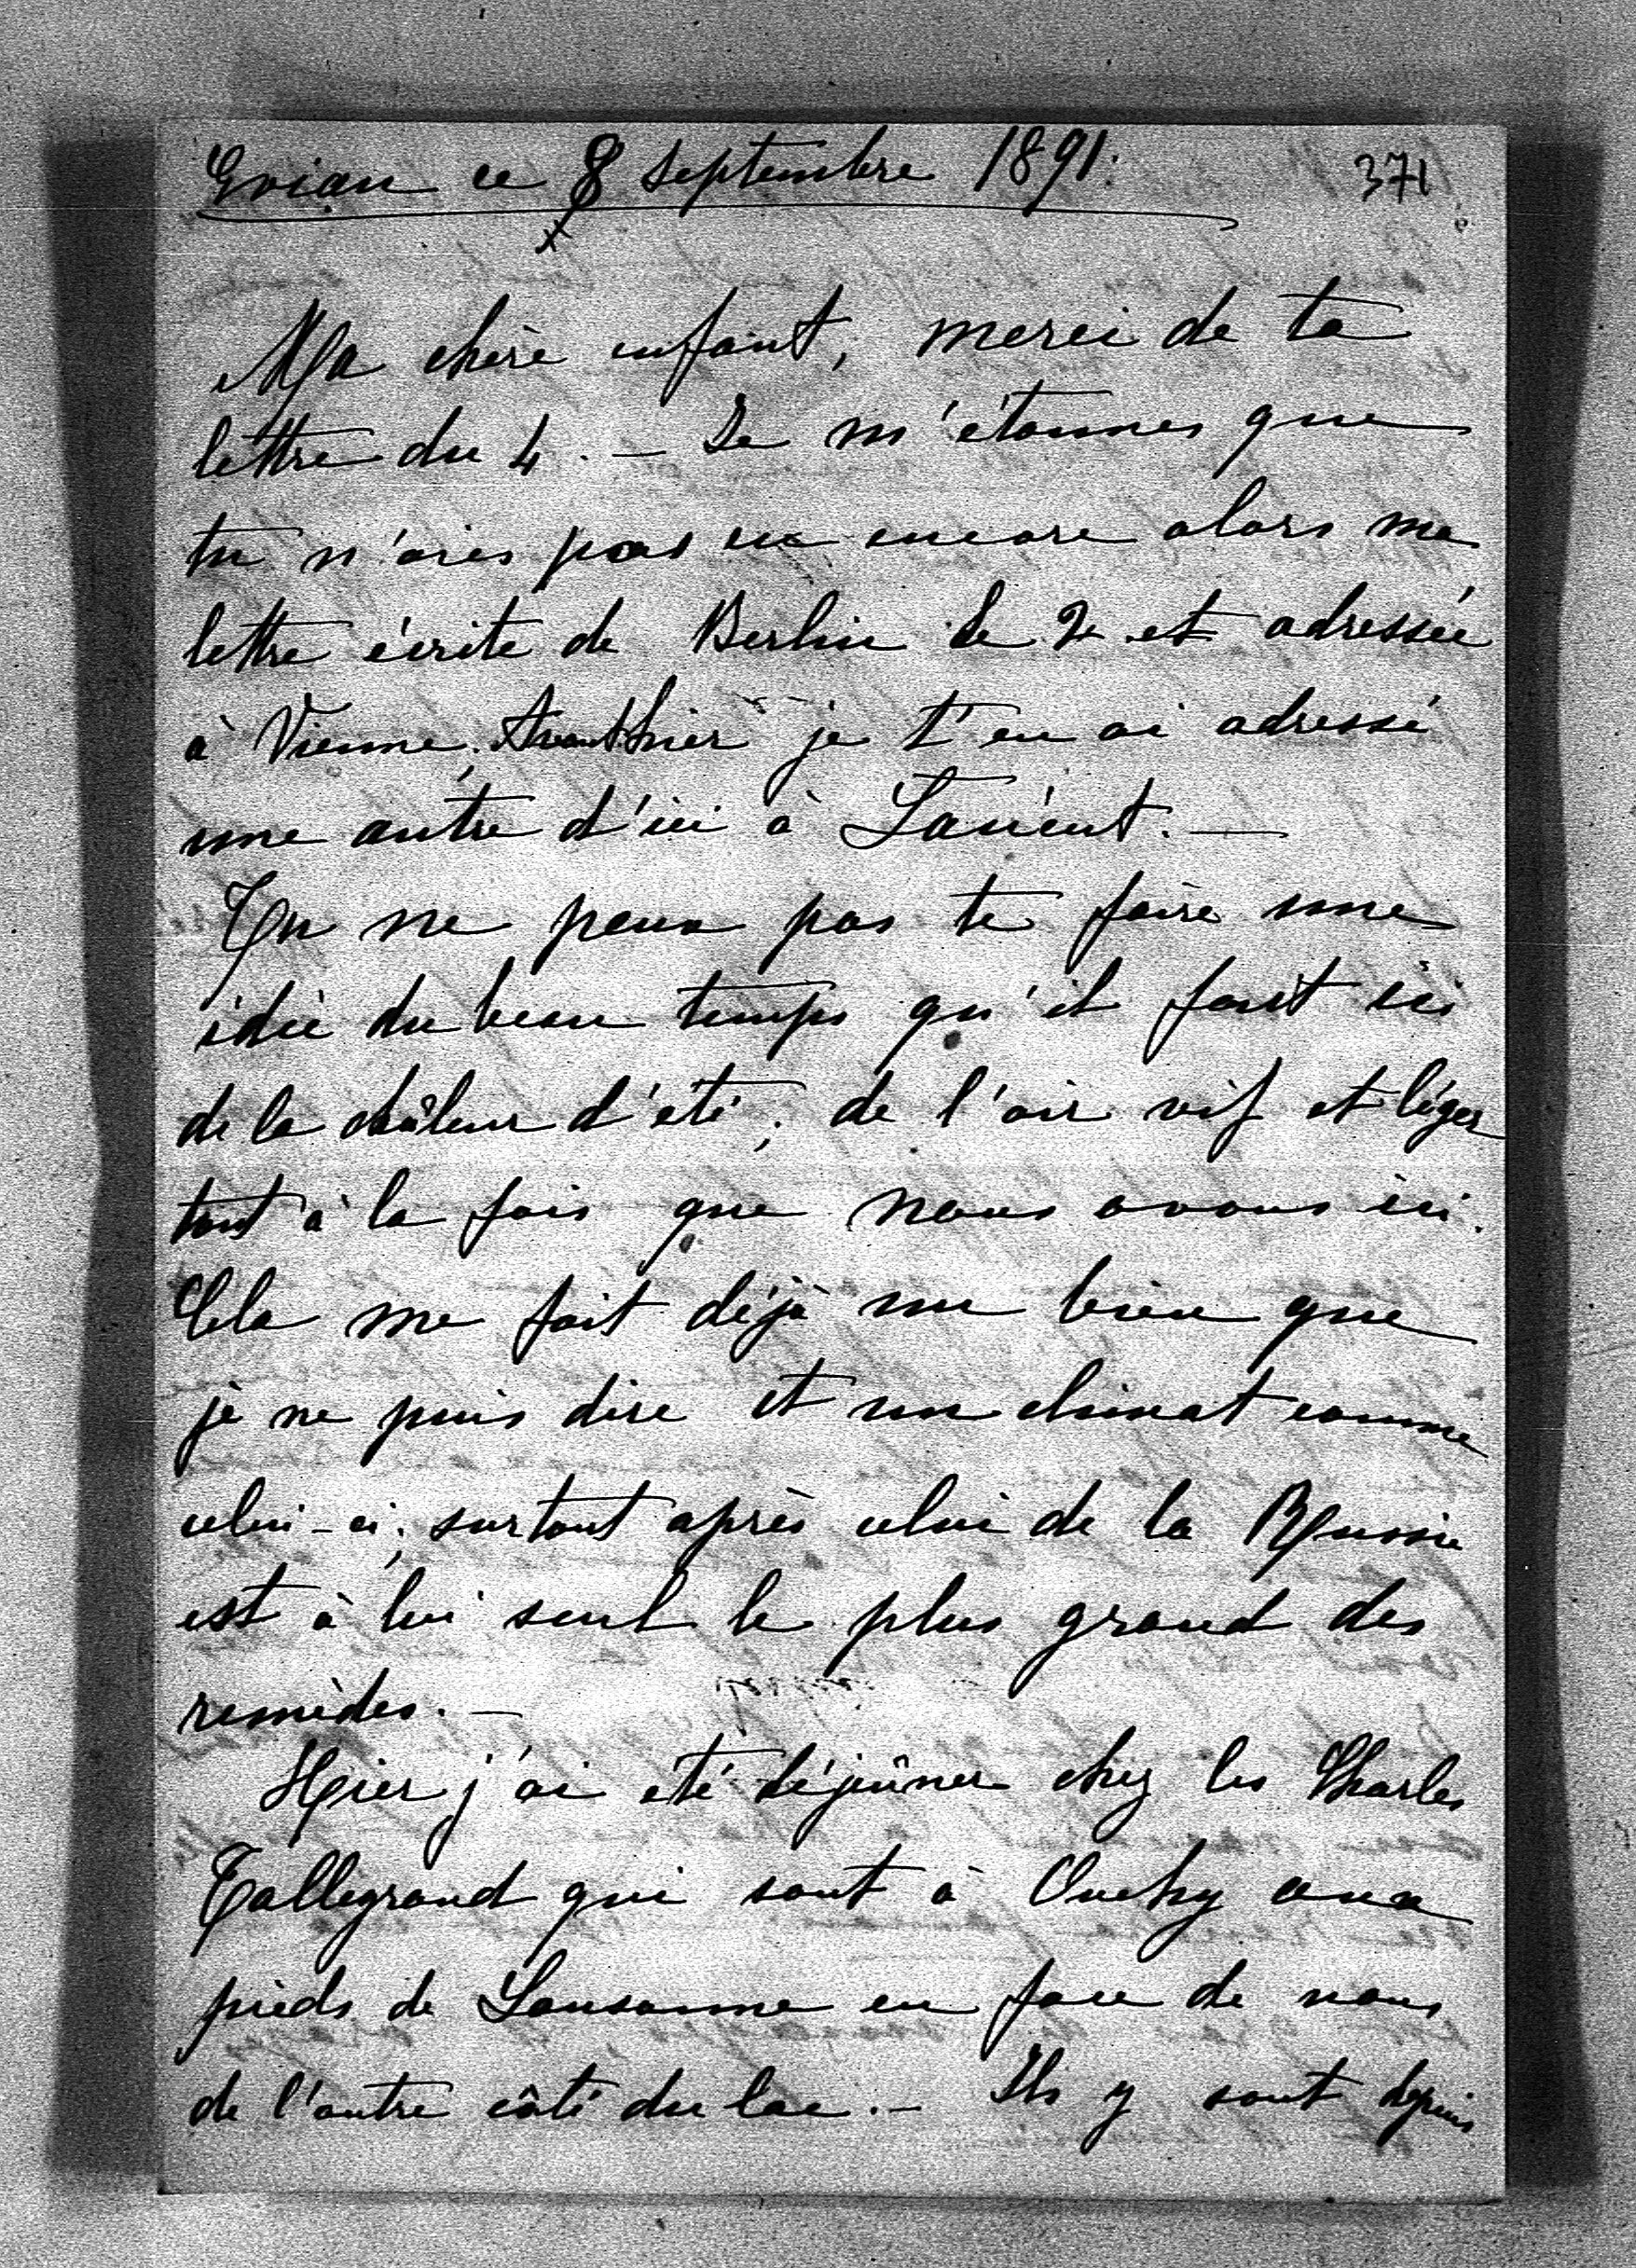 Evian ce 8 septembre 1891. 371
x
Ma chère enfant, merci de ta
lettre du 4. — Je m'étonnes que
tu n'aies pas eu encore alors ma
lettre écrite de Berlin le 2 et adressée
à Vienne. Avanthier je t'en ai adressé
une autre d'ici à Lancut. —
Tu ne peux pas te faire une
idée du beau temps qu'il fait ici
de la châleur d'été, de l'air vif et léger
tout à la fois que nous avons ici.
Cela me fait déjà un bien que
je ne puis dire et un climat comme
celui-ci, surtout après celui de la Russie
est à lui seul le plus grand des
remèdes. —
Hier j'ai été déjeûner chez les Charles
Tallegrand qui sont à Ouchy aux
pieds de Lausanne en face de nous
de l'autre côté du lac. — Ils y sont depuis